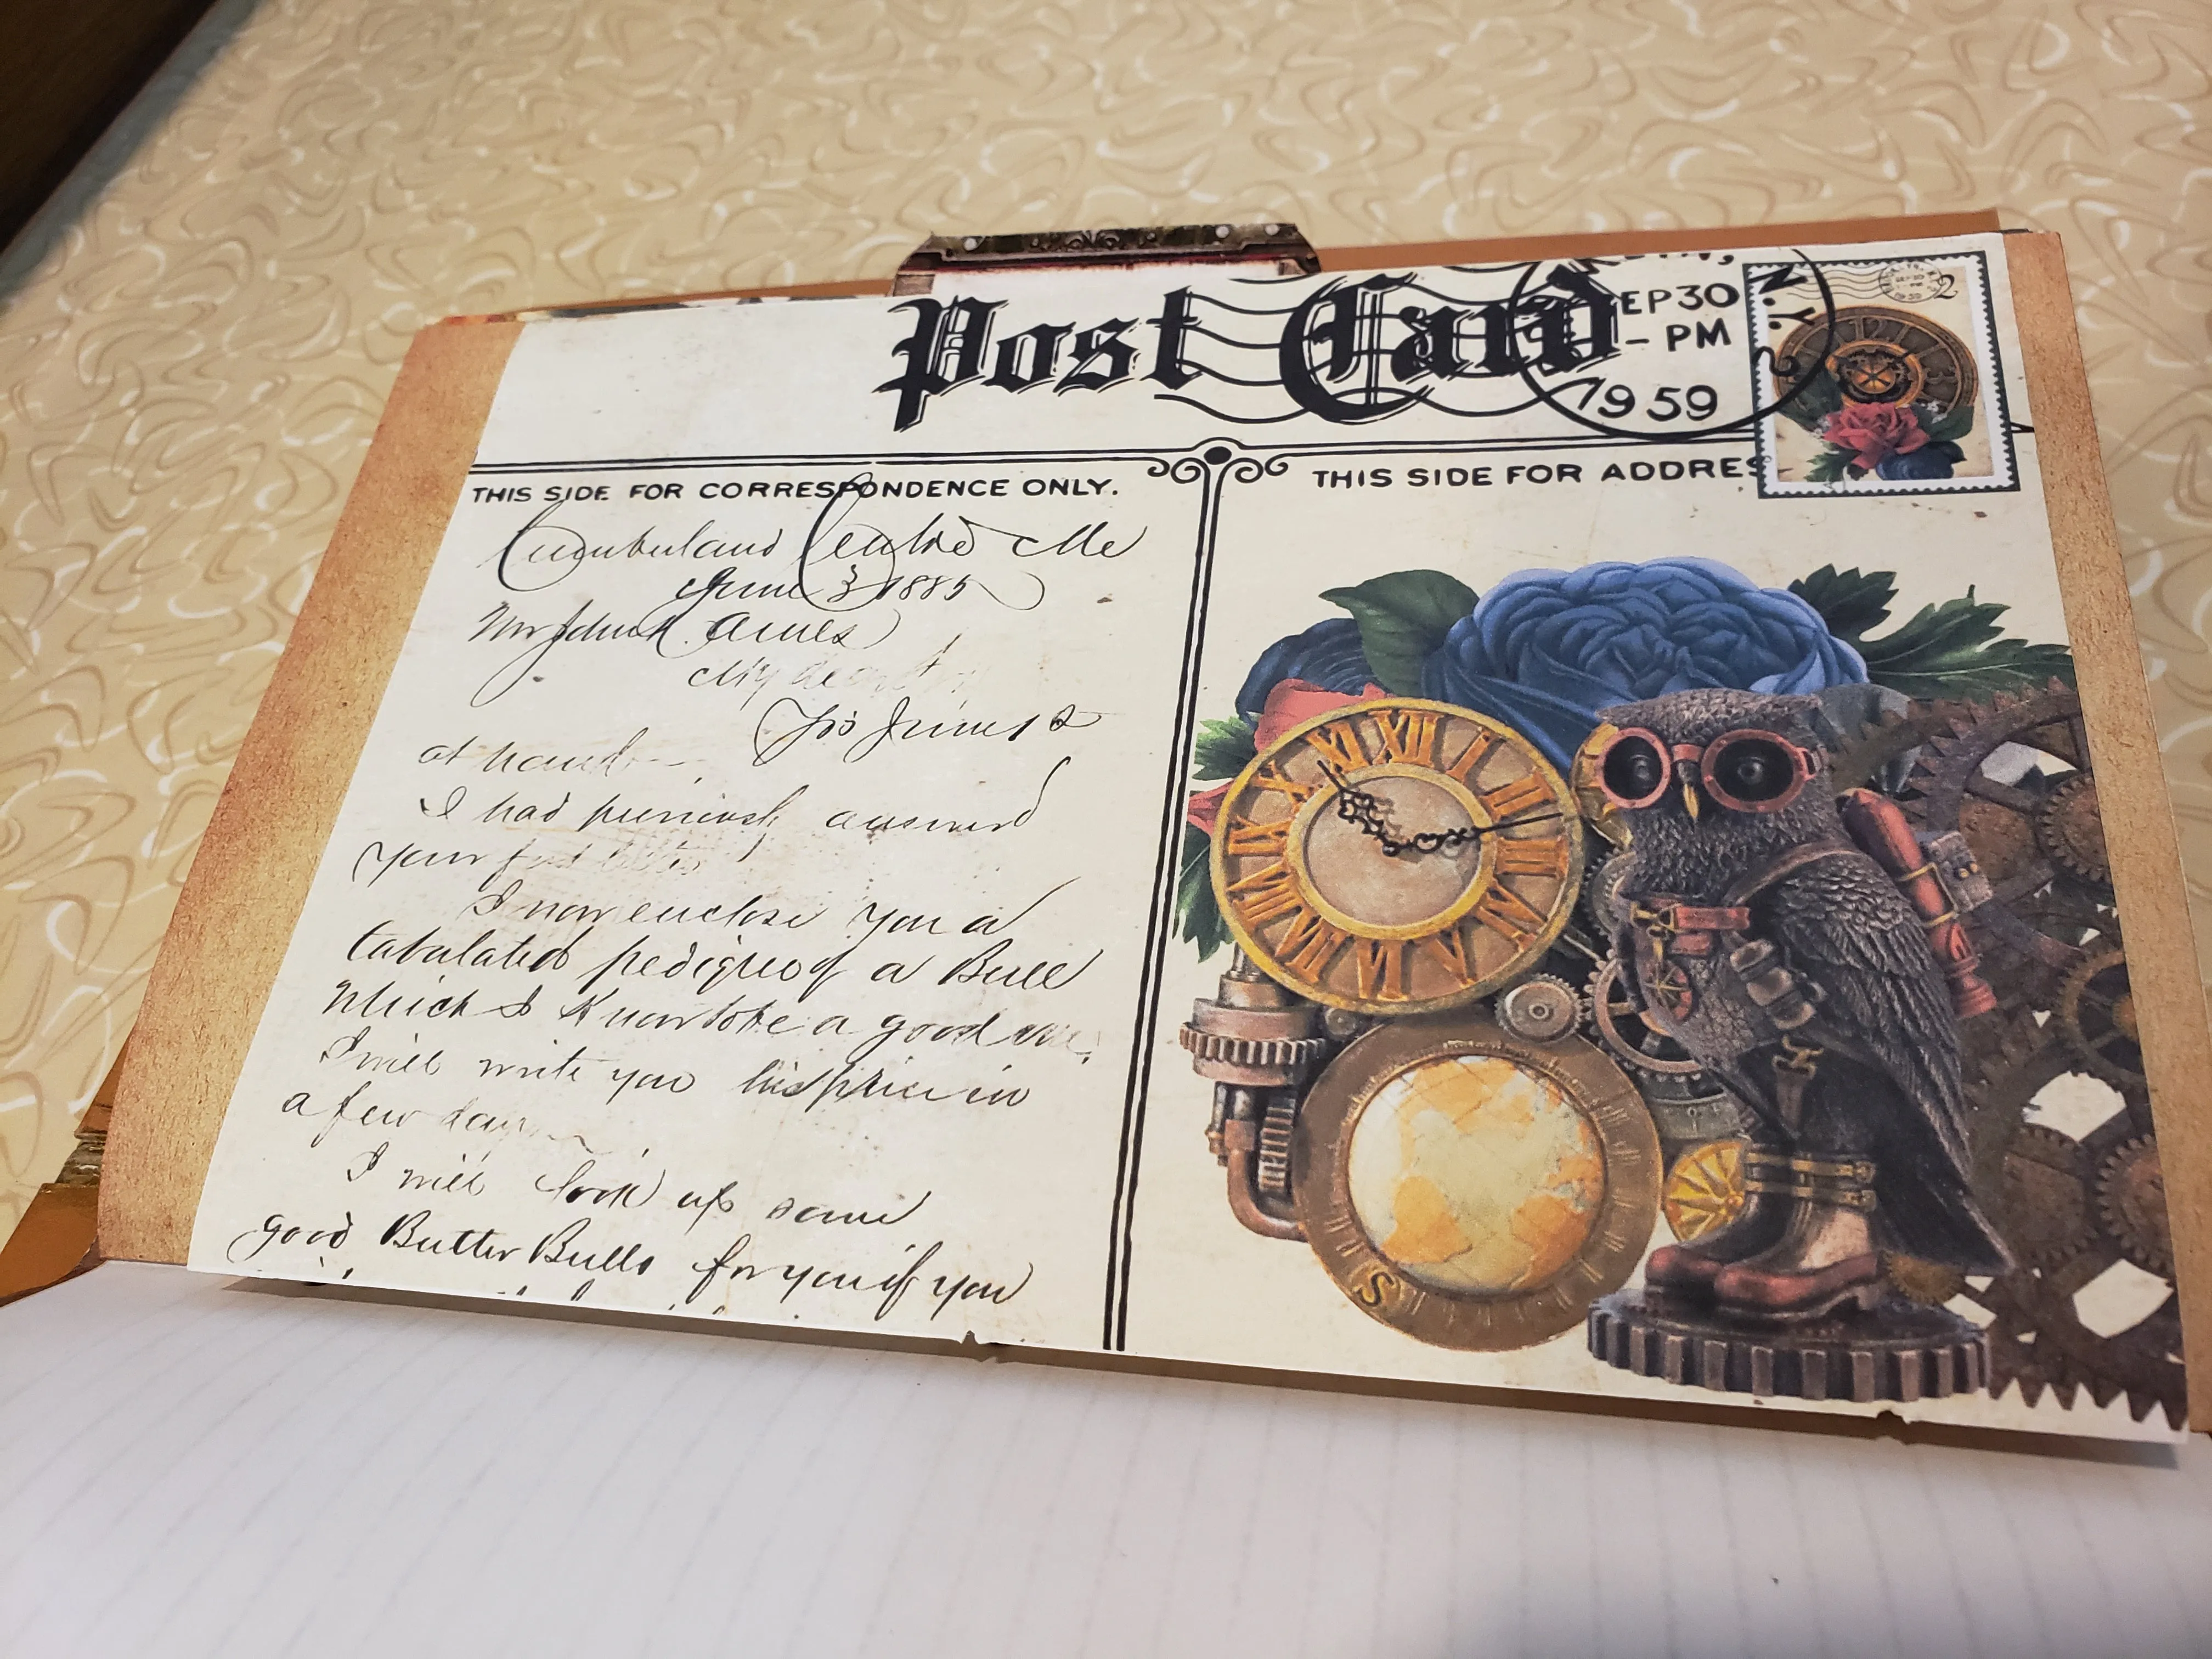 Post Card
EP 30
- PM
1959
N.Y.
2
THIS SIDE FOR CORRESPONDENCE ONLY.
THIS SIDE FOR ADDRES
Cumberland Centre Me
June 3 1885
Mr
My dear
at hand
I had previously answered
Your
I now enclose you a
tabulated pedigree of a Bull
Which I Know to be a good one.
I will write you his price in
a few days
I will look up some
good Butter Bulls for you if you
XII
I
II
III
IV
V
VI
VII
VIII
IX
X
XI
S